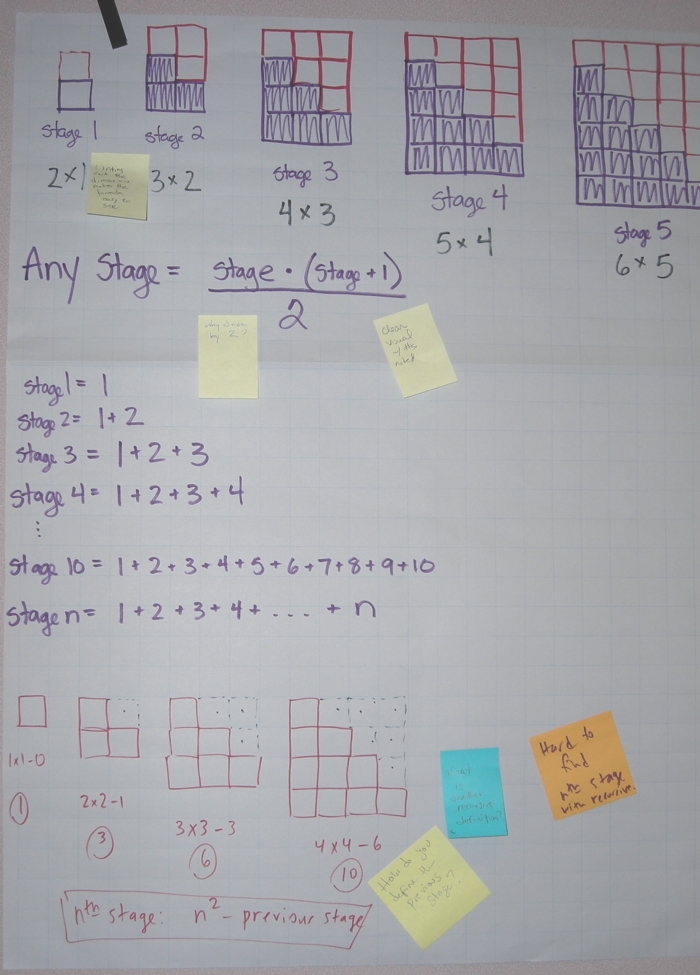 Stage 1
Stage 2
Stage 3
Stage 4
Stage 5
2x1
3x2
4x3
5x4
6x5
Any Stage = stage · (stage + 1)
2
why divide
by 2?
clear
visual
w/ the
Stage 1 = 1
Stage 2 = 1 + 2
Stage 3 = 1 + 2 + 3
Stage 4 = 1 + 2 + 3 + 4
⋮
Stage 10 = 1 + 2 + 3 + 4 + 5 + 6 + 7 + 8 + 9 + 10
Stage n = 1 + 2 + 3 + 4 + .... + n
1x1-0
2x2-1
3x3-3
4x4-6
1
3
6
10
nth stage: n² - previous stage
Hard to
find
nth stage
with recursive.
How do you
define the
previous
stage?